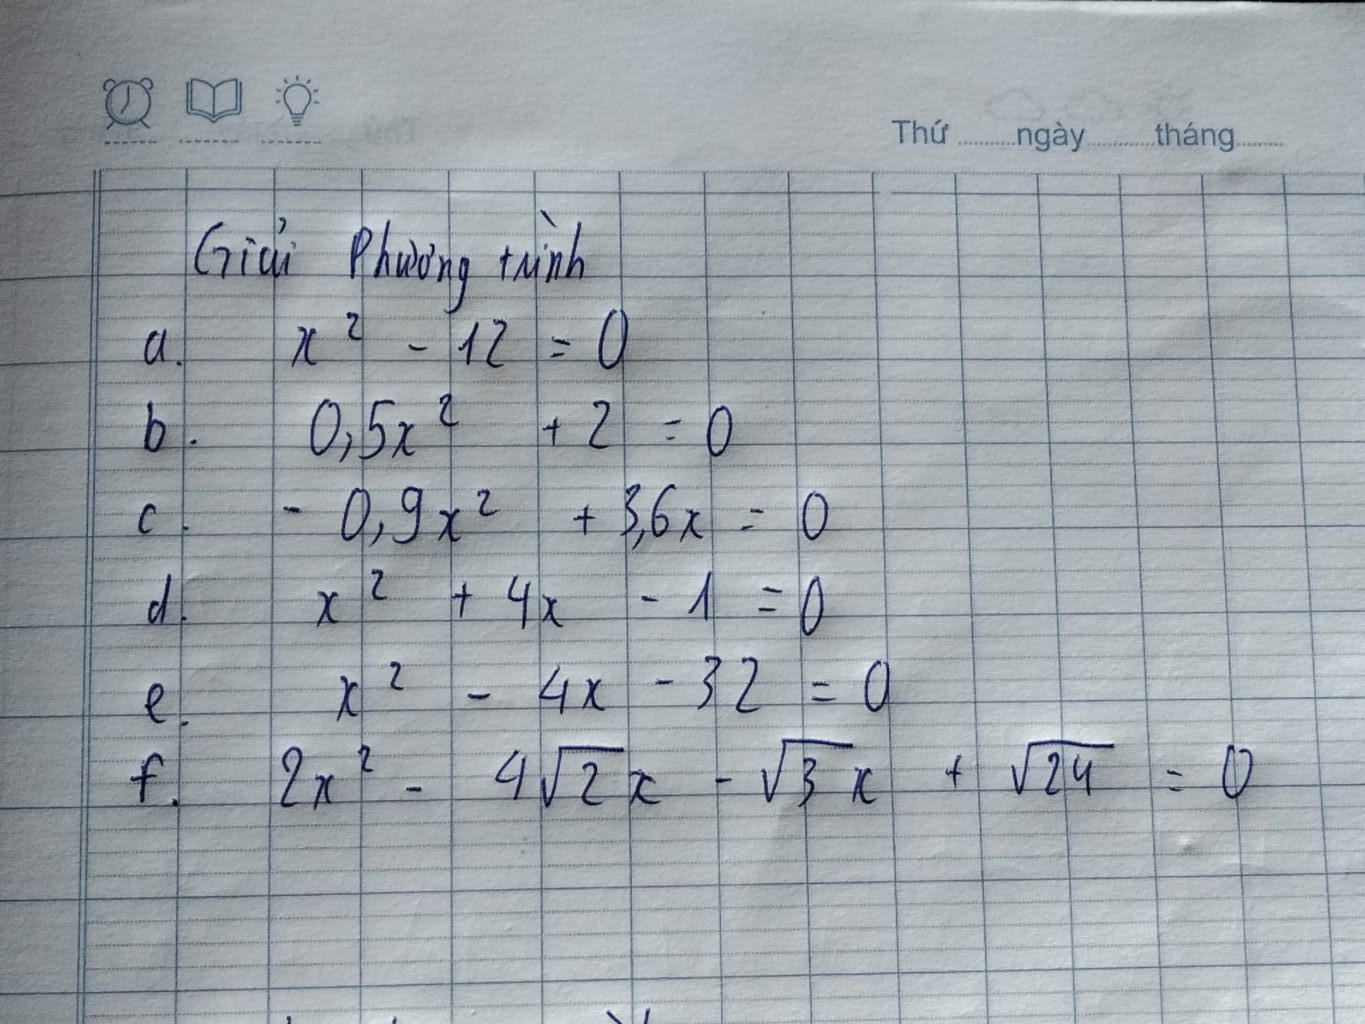 Thứ ..........ngày............tháng.........
Giải Phương trình
a. x² - 12 = 0
b. 0,5x² + 2 = 0
c. - 0,9x² + 3,6x = 0
d. x² + 4x - 1 = 0
e. x² - 4x - 32 = 0
f. 2x² - 4√2x - √3x + √24 = 0